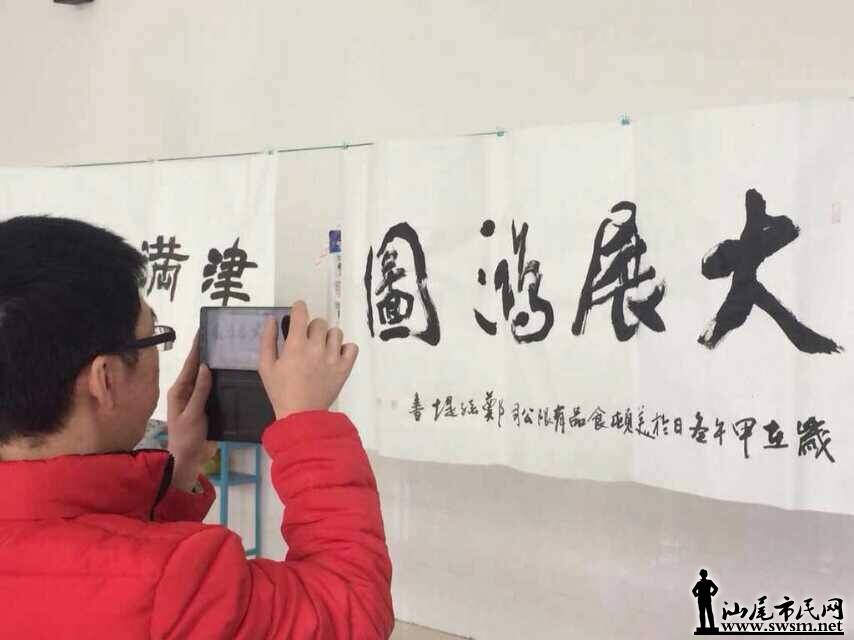 大展鴻圖
歲在甲午冬日於美頓食品有限公司鄭
書
津满
汕尾市民网
www.swsm.net